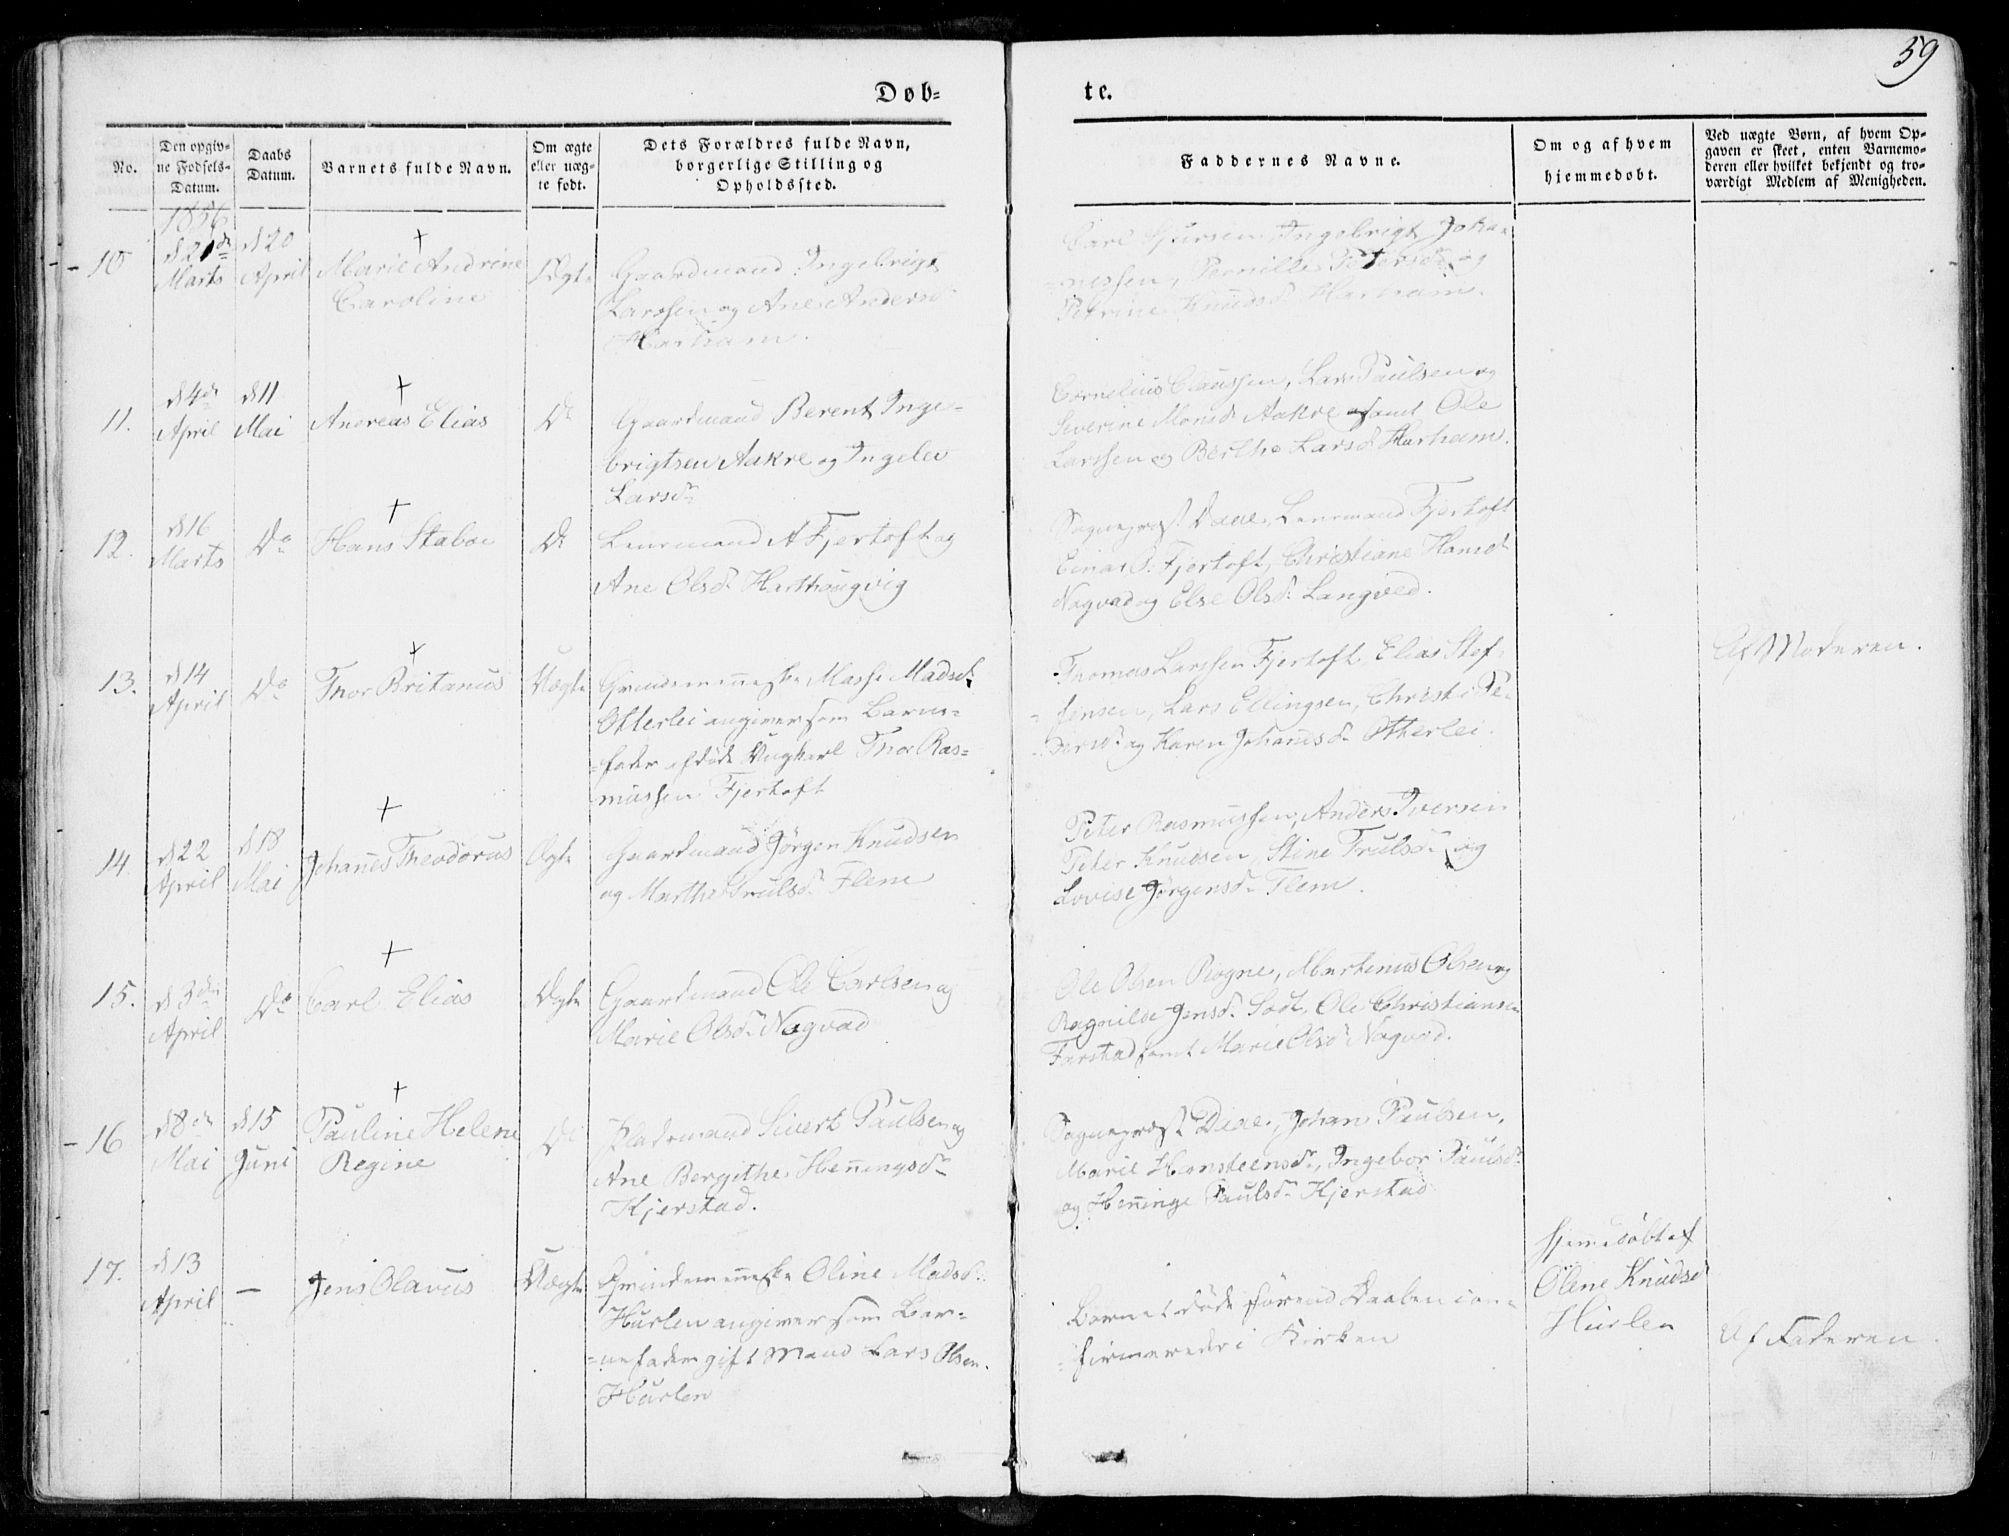 59
Døb=
te.
No.
Den opgiv-
ne Fødsels-
Datum.
Daabs
Datum.
Barnets fulde Navn.
Om ægte
eller uæg-
te født.
Dets Forældres fulde Navn,
borgerlige Stilling og
Opholdssted.
Faddernes Navne.
Om og af hvem
hjemmedøbt.
Ved uægte Børn, af hvem Op-
gaven er skeet, enten Barnemo-
deren eller hvilket bekjendt og tro-
værdigt Medlem af Menigheden.
1856
10
Marts
d 20
April
Marie Andrine
Caroline
Ægte
Gaardmand Ingebrigt
Larssen og Ane Andersd
Harham.
Carl Ingebrigt Joha=
=nessen, Pernille Petersd. og
Petrine Knudsd. Harham.
11.
d 4de
April
d 11
Mai
Andreas Elias
Do
Gaardmand Berent Inge=
brigtsen Aakre og Ingelev
Larsdr
Cornelius Claussen, Lars Paulsen og
Severine Monsd. Aakre samt Ole
Larssen og Berthe Larsd. Harham.
12.
d 16
Marts
Do
Hans Staboe
Do
Lensmand A Fjertoft og
Ane Olsd. Harthougvig
Sognepræst Daae, Lensmand Fjertoft
Einar O. Fjertoft, Christiane Hansd.
Nogvad og Else Olsd. Langved.
13.
d 14
April
Do
Thor Britanius
Uægte
Qvindemenneske Masse Madsd.
Otterlei angiver som Barns=
=fader afdøde Ungkarl Thor Ras=
mussen Fjertoft
Thomas Larssen Fjertoft, Elias Stef=
=fensen, Lars Ellingsen, Christi Pe=
dersd. og Karen Johansd. Otterlei.
Af Moderen.
14.
d 22
April
d 18
Mai
Johanes Theodorus
Ægte
Gaardmand Jørgen Knudsen
og Marthe Trulsd. Flem
Peter Rasmussen, Anders Iversen
Peter Knudsen, Stine Trulsd. og
Lovise Jørgensd. Flem.
15.
d 3die
April
Do
Carl Elias
Ægte
Gaardmand Ole Carlsen og
Marie Olsd. Nogvad
Ole Olsen Rogne, Martinus Olsen og
Ragnilde Jensd. Ole Christiansen
Farstad samt Marie Olsd. Nogvad.
16
d 8de
Mai
d 15
Juni
Pauline Helene
Regine
Do
Pladsmand Sivert Paulsen og
Ane Bergithe Henningsdr
Kjerstad.
Sognepræst Daae, Johan Paulsen,
Marie Hansteensd., Ingebor Paulsd.
og Henninge Paulsd. Kjerstad
17.
d 13
April
—
Jens Olavus
Uægte
Qvindemenneske Oline Madsd.
Hurlen angiver som Bar=
=nefader gift Mand Lars Olsen
Hurlen
Barnet døde førend Daaben con=
=firmeredes i Kirken
hjemmedøbt af
Olene Knudsd
Hurlen
Af Faderen.